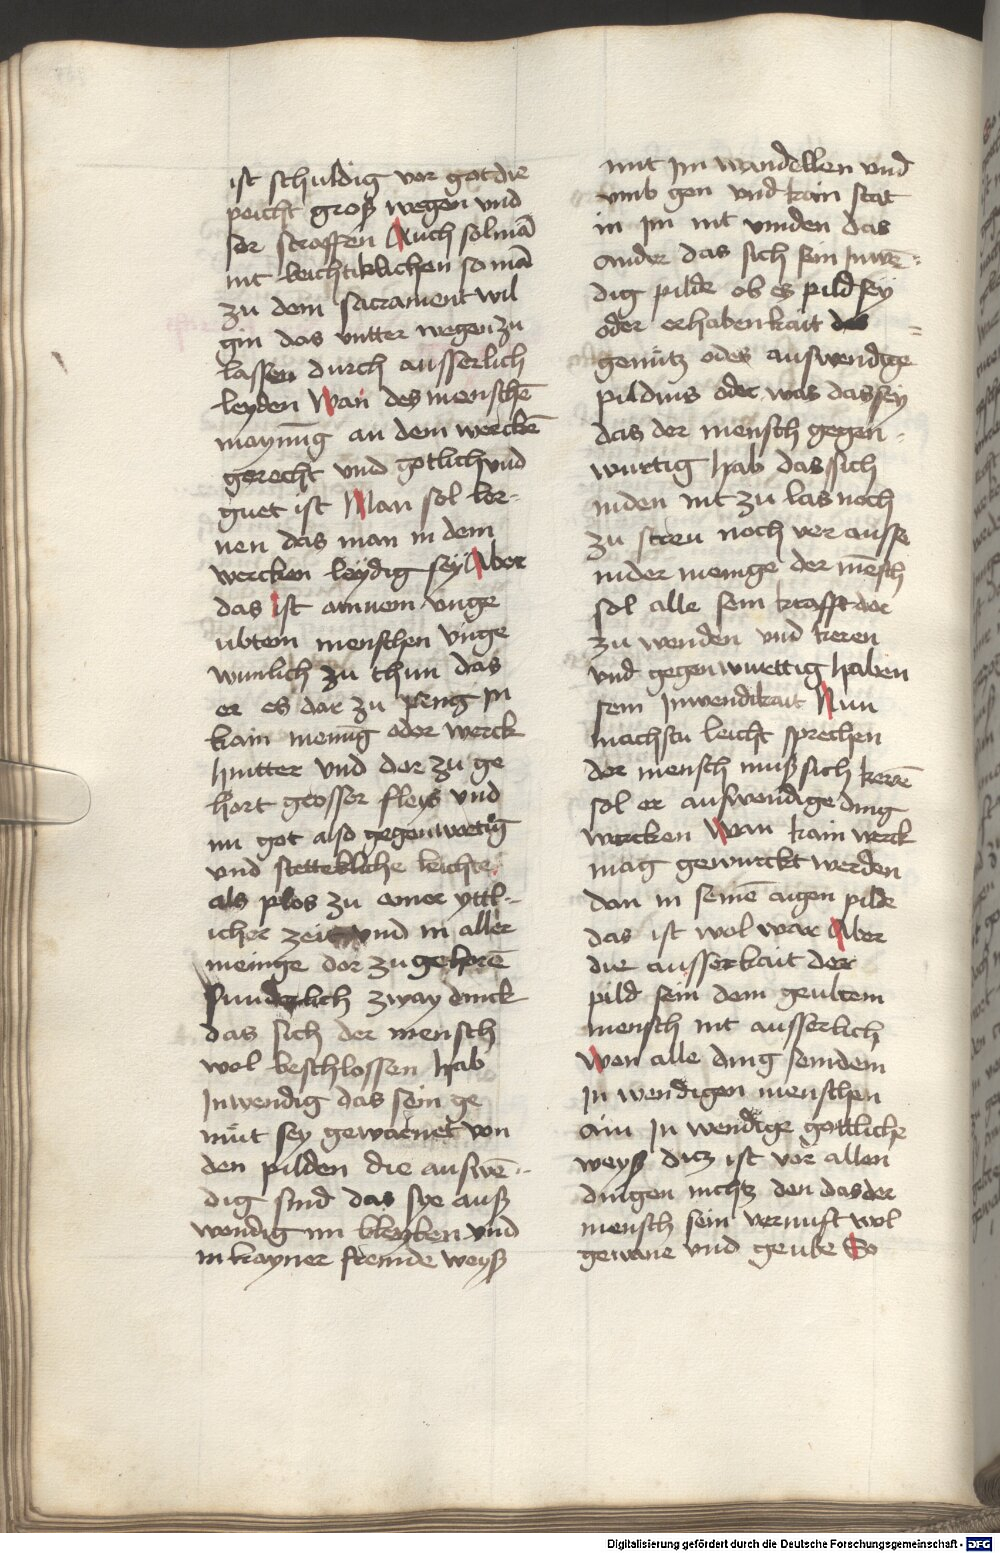 ist schuldig vor got die
peicht groß wegen und
ser straffen Auch sol mā
nit leichtiklichen so mā
zu dem sacrament wil
gin das untter wegen zu
lassen durch ausserlich
leyden Wan des menschē
maynūg an dem werckē
gerecht und gotlich und
guet ist Man sol ler-
nen das man in dem
wercken leydig sey Aber
das ist ainnem unge
ubtem menschen unge
wunlich zu thun das
er es dar zu preng in
kain menūg oder werck
hintter und dor zu ge
hort grosser fleys und
im got also gegenwertig
und stettekliche leichte
als plos zu ainer yttl-
icher zeit und in aller
meinge dor zu gehorē
sunderlich zway dinck
das sich der mensch
wol beschlossen hab
Inwendig das sein ge
müt sey gewarnet von
den pilden die auswē-
dig sind das sye auß
wendig im bleyben und
in kayner fremde weyß
mit im wandellen und
umb gen und kain stat
in im nit vinden das
ander das sich sein inwē-
dig pilde ob es pild sey
oder erhabenkait des
gemütz oder auswendige
pildnis oder was das sey
das der mensch gegen-
wurtig hab das sich
niden nit zu las noch
zu streu noch ver ausse
nider meinge der mēsch
sol alle sein krafft dor
zu wenden und keren
und gegenwurttig haben
sein Inwendikait Nun
machstu leicht sprechen
der mensch muß sich kerē
sol er auswendige ding
wercken Wan kain werck
mag gewurckt werden
dan in seinē aigen pilde
das ist wol war Aber
die ausserkait der
pild sein dem geubtem
mensch nit ausserlich
Wen alle ding sein dem
In wendigen menschen
ain In wendige gottliche
weyß ditz ist vor allen
dingen nichtz den das der
mensch sein vernuft wol
gewane und geube So
Digitalisierung gefördert durch die Deutsche Forschungsgemeinschaft - DFG